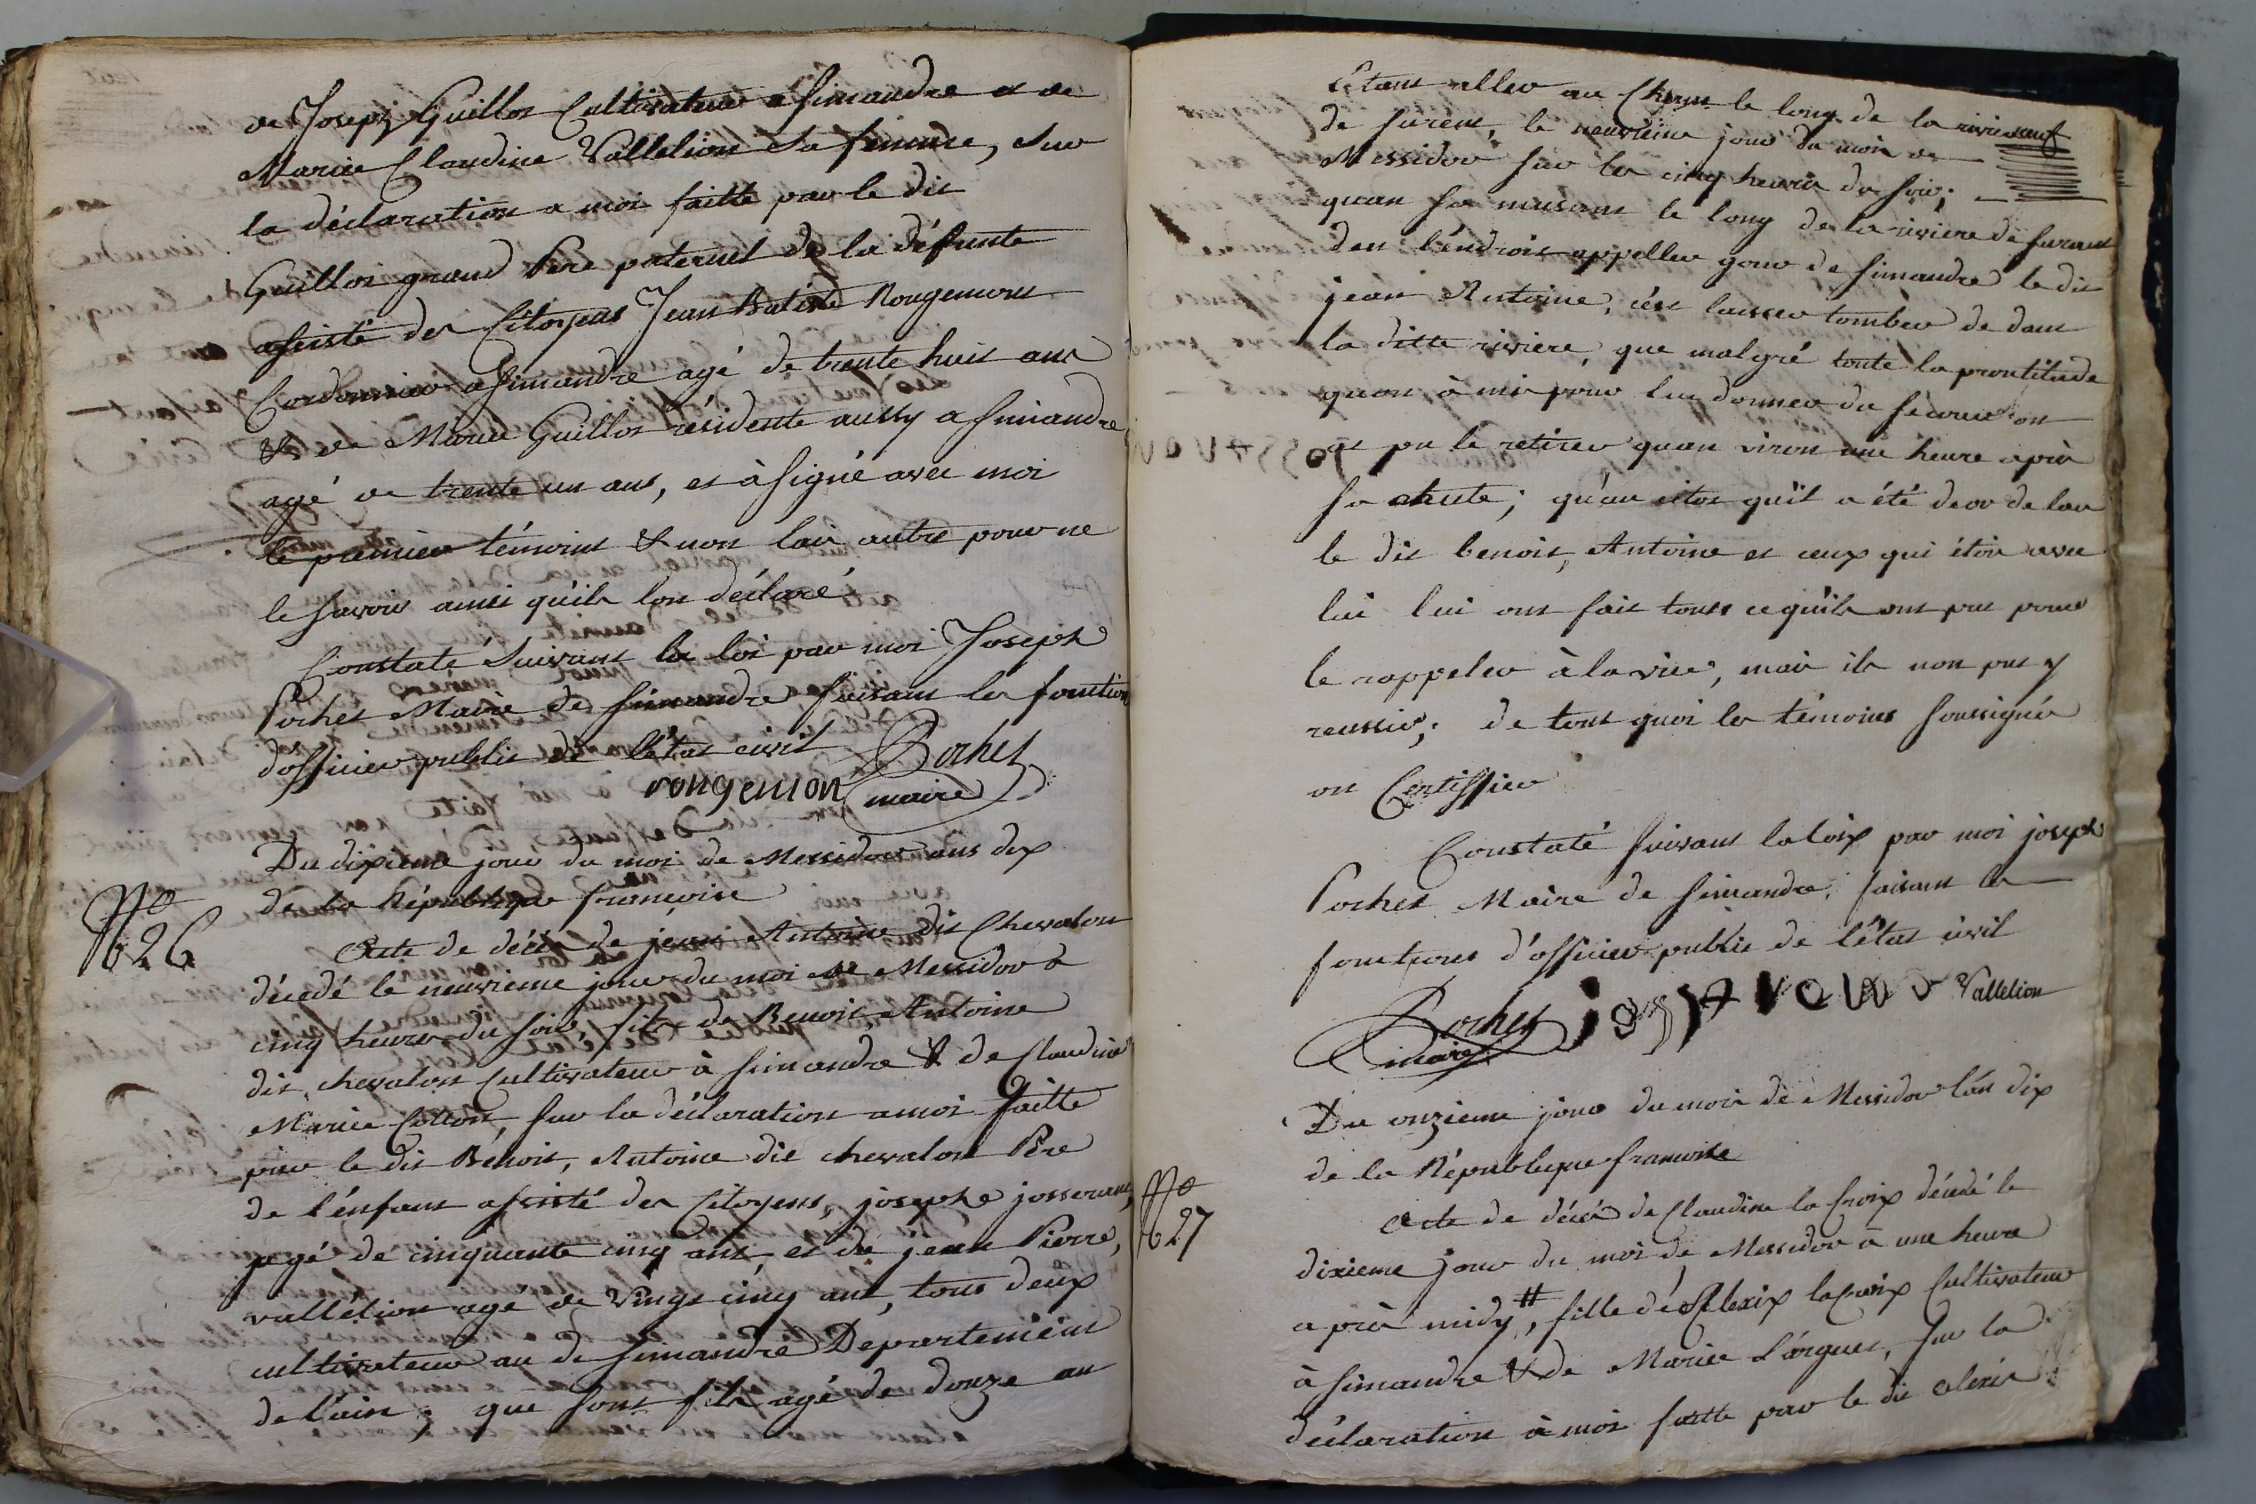 de Joseph Guillot Cultivateur a Simandre et de
Marie Claudine Vallelion Sa femme, Sur
la déclaration a moi faitte par le dit
Guillot grand Pere paternel de la défunte
assisté des Citoyens Jean Batiste Rougemont
Cordonnier a Simandre agé de trente huit ans
& de Marie Guillot résidente aussy a Simandre
agé de trente un ans, et à signé avec moi
le premier témoins & non lai autre pour ne
le savoir ainsi quils lon déclaré
Constaté Suivant la loi par moi Joseph
Pochet Maire de Simandre faisant les fonction
d'officier public de l'état civil Pochet
rongemon maire
Du dixieme jour du moi de Messidor ans dix
de la République françoise
No
26
Acte de décès de jean Antoine dit Chevalon
décedé le neuvieme jour du moi de Messidor à
cinq heures du soir, fils de Benoit Antoine
dit chevalon Cultivateur à Simandre & de Claudine
Marie Cotton, sur la déclaration a moi faitte
par le dit Benoit, Antoine dit chevalon Père
de l'énfant assisté des Citoyens, josephe josserand,
agé de cinquante cinq ans, et de jean Pierre,
vallélion agé de vingt cinq ans, tous deux
cultivateur au de Simandre Departement
de l'ain; que sont fils agé de douze an
Etant aller au le long de la riviere
de Surent, le neuvieme jour du mois de
Messidor sur les cinq heures du soir;
quan sa musant le long de la rivière de Surant
dans l'éndroit appeller gour de Simandre le dit
jean Antoine, c'ést laisser tomber de dans
la ditte riviere, que malgré toute la prontitude
quon à mis pour lui donner du secour on
at pu le retirer quan viron une heure après
sa chute; qu'au sitos quil a été deor de lau
le dit benoit, Antoine et ceux qui étoi avec
lui lui ont fait touts ce quils ont put pour
le rappeler à la vie, mais ils non put y
reussir; de tout quoi les témoins soussignés
on Certiffier
Constaté suivant la loix par moi joseph
Pochet Maire de Simandre, faisant les
fonctions d'officier public de l'état civil
Pochet Vallelion
maire
Du onzieme jour du mois de Messidor l'an dix
de la Républeque francoise
No
27
Acte de décès de Claudine la Croix décedé le
dixieme jour du moi de Messidor a une heure
après midy #, fille de Alexix laCroix Cultivateur
à Simandre & de Marie Largues, sur la
déclaration à moi faitte par le dit alexis